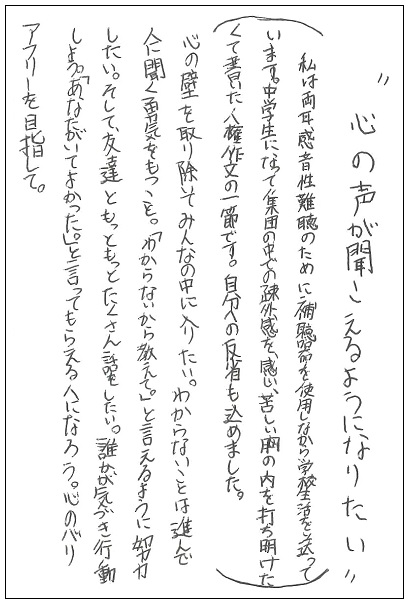 〝心の声が聞こえるようになりたい〟
(私は両耳感音性難聴のために補聴器を使用しながら学校生活を送って
います。中学生になって集団の中での疎外感を、感じ、苦しい胸の内を打ち明けた
くて書いた人権作文の一節です。自分への反省も込めました。)
心の壁を取り除いてみんなの中に入りたい。わからないことは進んで
人に聞く勇気をもつこと。「わからないから教えて。」と言えるように努力
したい。そして、友達ともっともっとたくさん話をしたい。誰かが気づき行動
しよう。「あなたがいてよかった。」と言ってもらえる人になろう。心のバリ
アフリーを目指して。